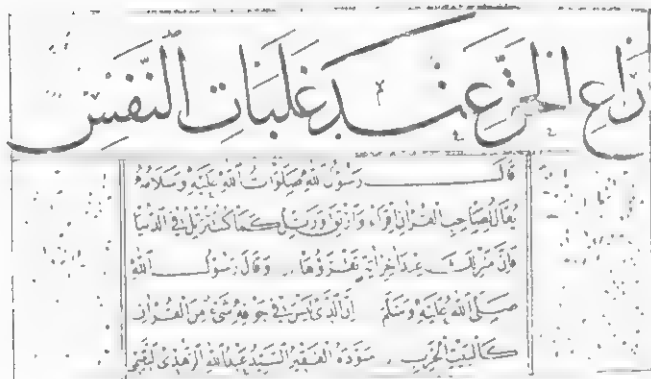 راع الحق عند غلبات النفس
قال رسول الله صلوات الله عليه وسلامه
يقال لصاحب القرآن اقرأ وارتق ورتل كما كنت ترتل في الدنيا
فإن منزلك عند آخر آية تقرؤها وقال رسول الله
صلى الله عليه وسلم إن الذي ليس في جوفه شيء من القرآن
كالبيت الخرب سوده الفقير السيد عبد الله الزهدي